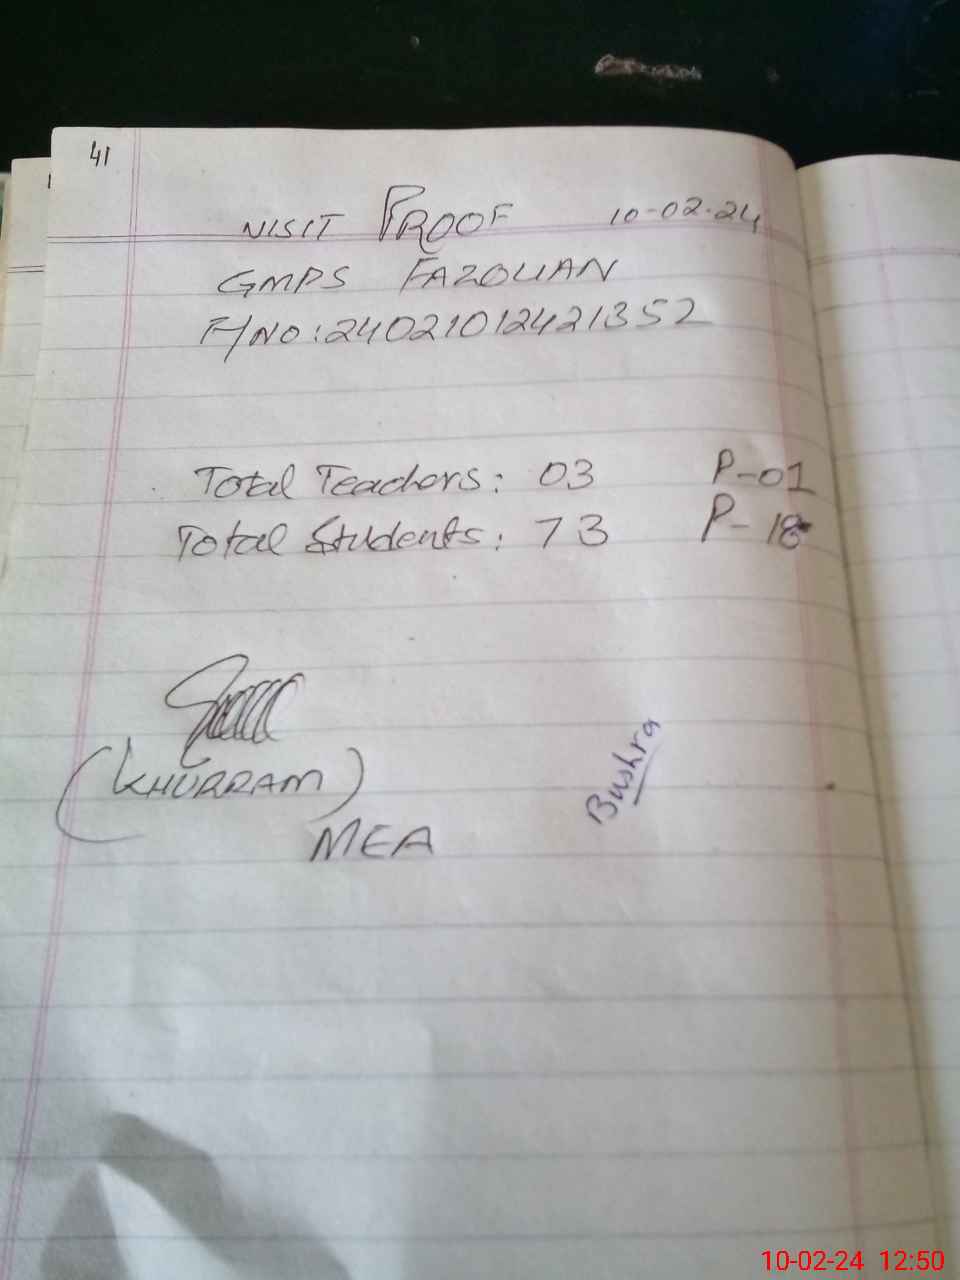 41
VISIT PROOF 10-02-24
GMPS FAZOLIAN
F/NO:24021012421352
Total Teachers: 03 P-01
Total Students: 73 P-18
(KHURRAM)
MEA
Bushra
10-02-24 12:50